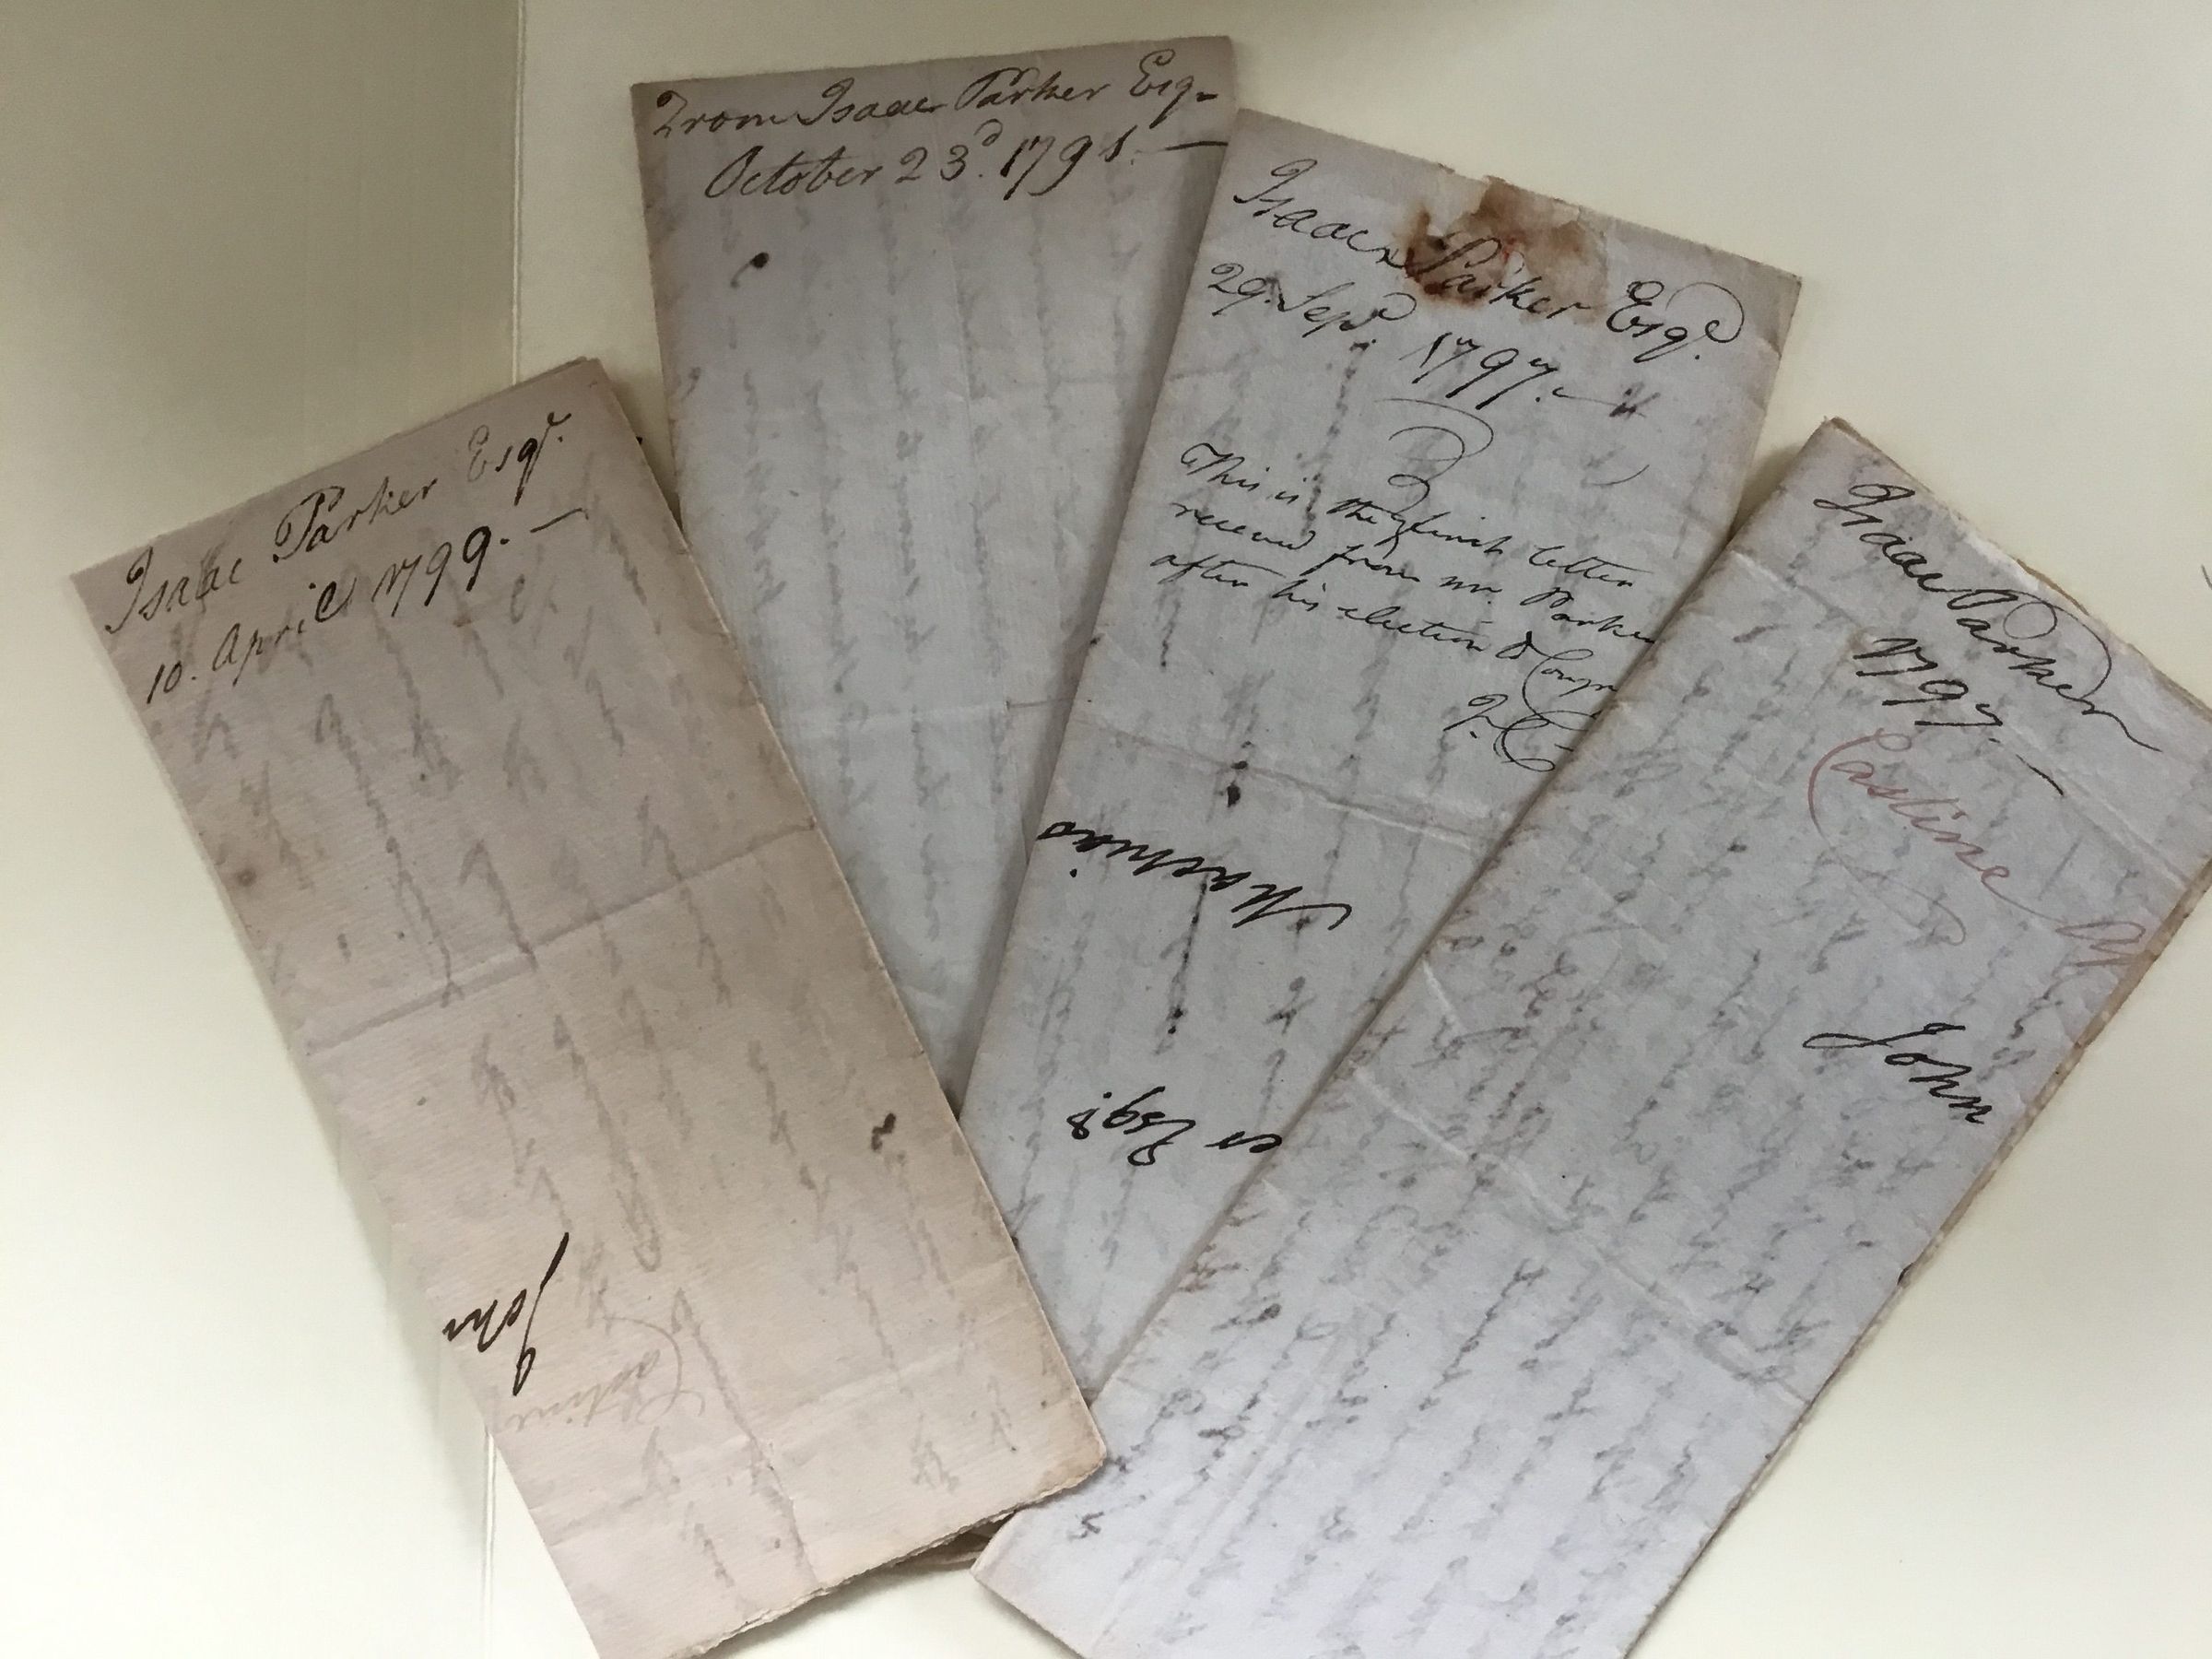 Isaac Parker Esqr.
10. April 1799. —
John
Castine
From Isaac Parker Esqr
October 23d. 1791. —
Isaac Parker Esqr.
29. Sepr. 1797. —
This is the first letter
received from mr. Parker
after his election to Congr
Machias
er Esqr.
Isaac Parker
1797. —
Castine
John